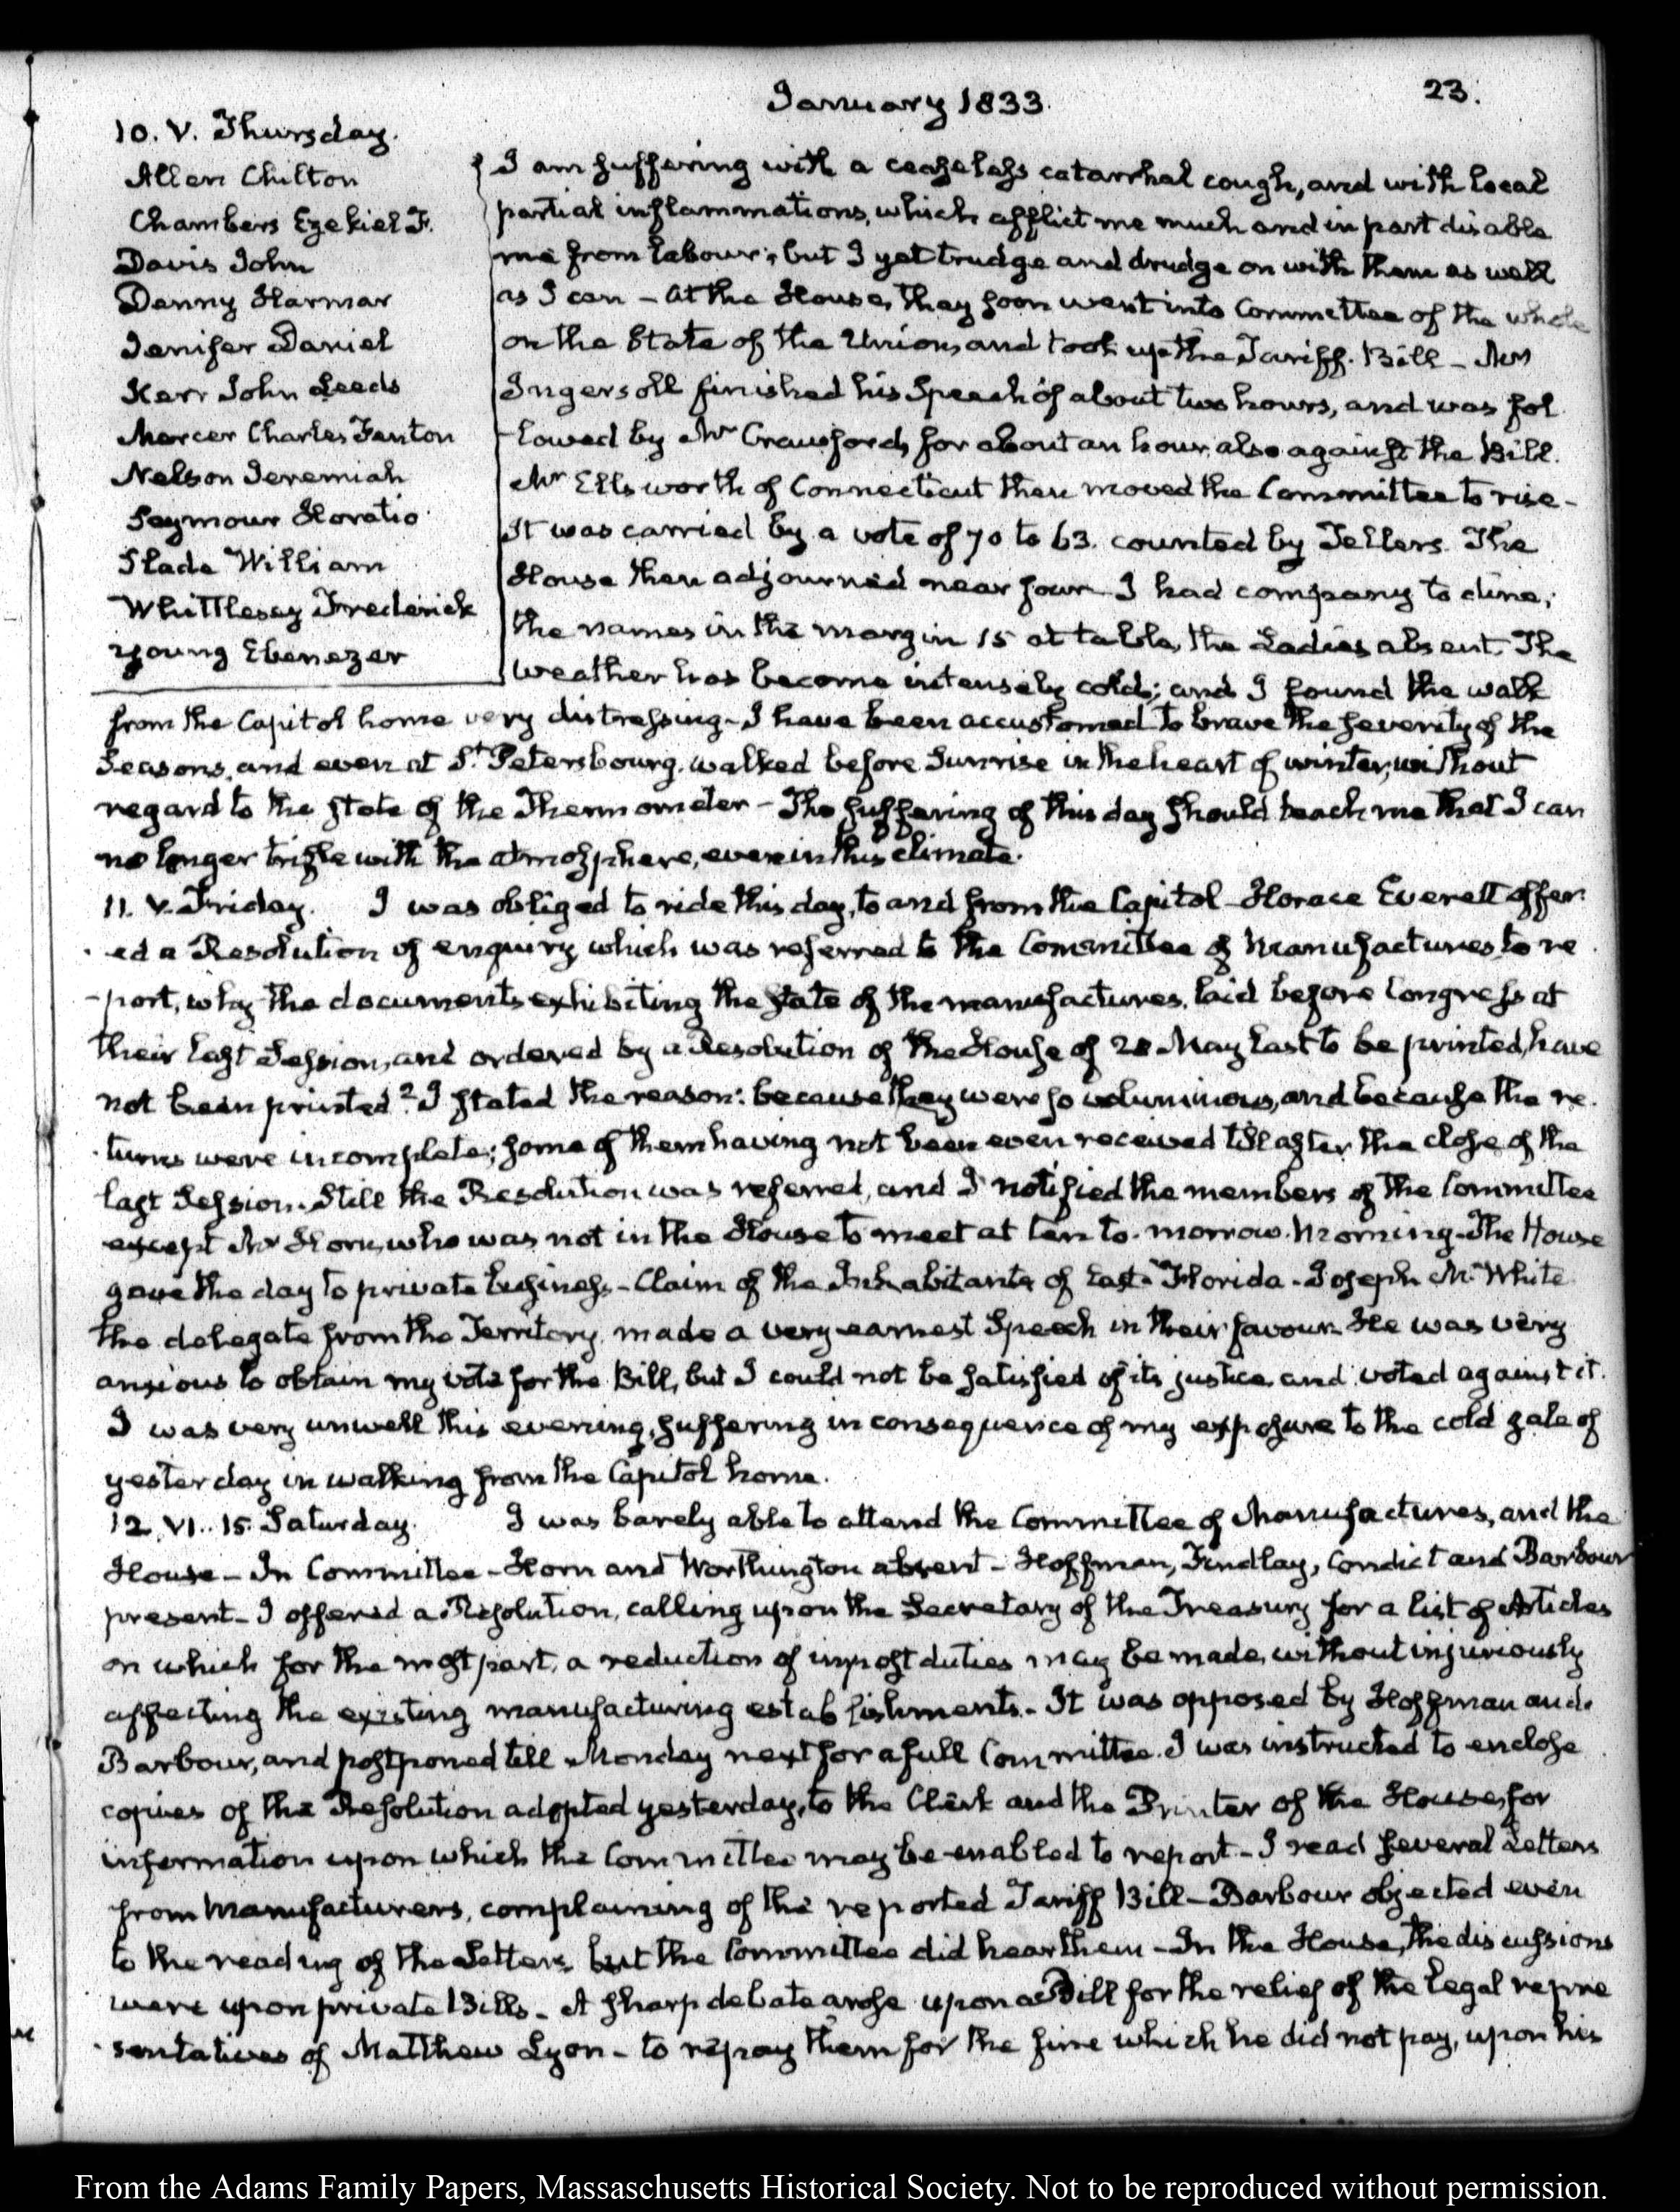 January 1833.
23.
10. V. Thursday.
Allen Chilton
Chambers Ezekiel F.
Davis John
Denny Harmar
Jenifer Daniel
Kerr John Leeds
Mercer Charles Fenton
Nelson Jeremiah
Seymour Horatio
Slade William
Whittlesey Frederick
Young Ebenezer
I am suffering with a ceaseless catarrhal cough, and with local
partial inflammations, which afflict me much and in part disable
me from labour; but I yet trudge and drudge on with them as well
as I can — At the House, they soon went into Committee of the whole
on the State of the Union, and took up the Tariff. Bill — Mr
Ingersoll finished his Speech of about two hours, and was fol
-lowed by Mr Crawford, for about an hour, also against the Bill.
Mr Ellsworth of Connecticut then moved the Committee to rise —
It was carried by a vote of 70 to 63. counted by Tellers. The
House then adjourned near four — I had company to dine;
the names in the margin 15 at table, the Ladies absent. The
weather has become intensely cold; and I found the walk
from the Capitol home very distressing — I have been accustomed to brave the severity of the
Seasons, and even at St. Petersbourg, walked before Sunrise in the heart of winter, without
regard to the state of the Thermometer — The suffering of this day should teach me that I can
no longer trifle with the atmosphere, even in this climate.
11. V. Friday. I was obliged to ride this day, to and from the Capitol — Horace Everett offer
-ed a Resolution of enquiry which was referred to the Committee of Manufactures, to re
-port, why the documents exhibiting the state of the manufactures, laid before Congress at
their last Session, and ordered by a Resolution of the House of 28 May last to be printed, have
not been printed? I stated the reason: because they were so voluminous, and because the re
-turns were incomplete; some of them having not been even received till after the close of the
last Session. Still the Resolution was referred, and I notified the members of the Committee
except Mr Horn, who was not in the House to meet at ten to-morrow. Morning — The House
gave the day to private business — Claim of the Inhabitants of East-Florida — Joseph M. White
the delegate from the Territory, made a very earnest Speech in their favour. He was very
anxious to obtain my vote for the Bill, but I could not be satisfied of its justice, and voted against it.
I was very unwell this evening, suffering in consequence of my exposure to the cold gale of
yesterday in walking from the Capitol home.
12. VI.. 15. Saturday. I was barely able to attend the Committee of Manufactures, and the
House — In Committee — Horn and Worthington absent — Hoffman, Findlay, Condict and Barbour
present — I offered a Resolution, calling upon the Secretary of the Treasury for a list of Articles
on which for the most part, a reduction of impost duties may be made, without injuriously
affecting the existing manufacturing establishments — It was opposed by Hoffman and
Barbour, and postponed till Monday next for a full Committee. I was instructed to enclose
copies of the Resolution adopted yesterday, to the Clerk and the Printer of the House, for
information upon which the Committee may be enabled to report — I read several Letters
from Manufacturers, complaining of the reported Tariff Bill — Barbour objected even
to the reading of the Letters, but the Committee did hear them — In the House, the discussions
were upon private Bills — A sharp debate arose upon a Bill for the relief of the legal repre
-sentatives of Matthew Lyon — to repay them for the fine which he did not pay, upon his
From the Adams Family Papers, Massachusetts Historical Society. Not to be reproduced without permission.